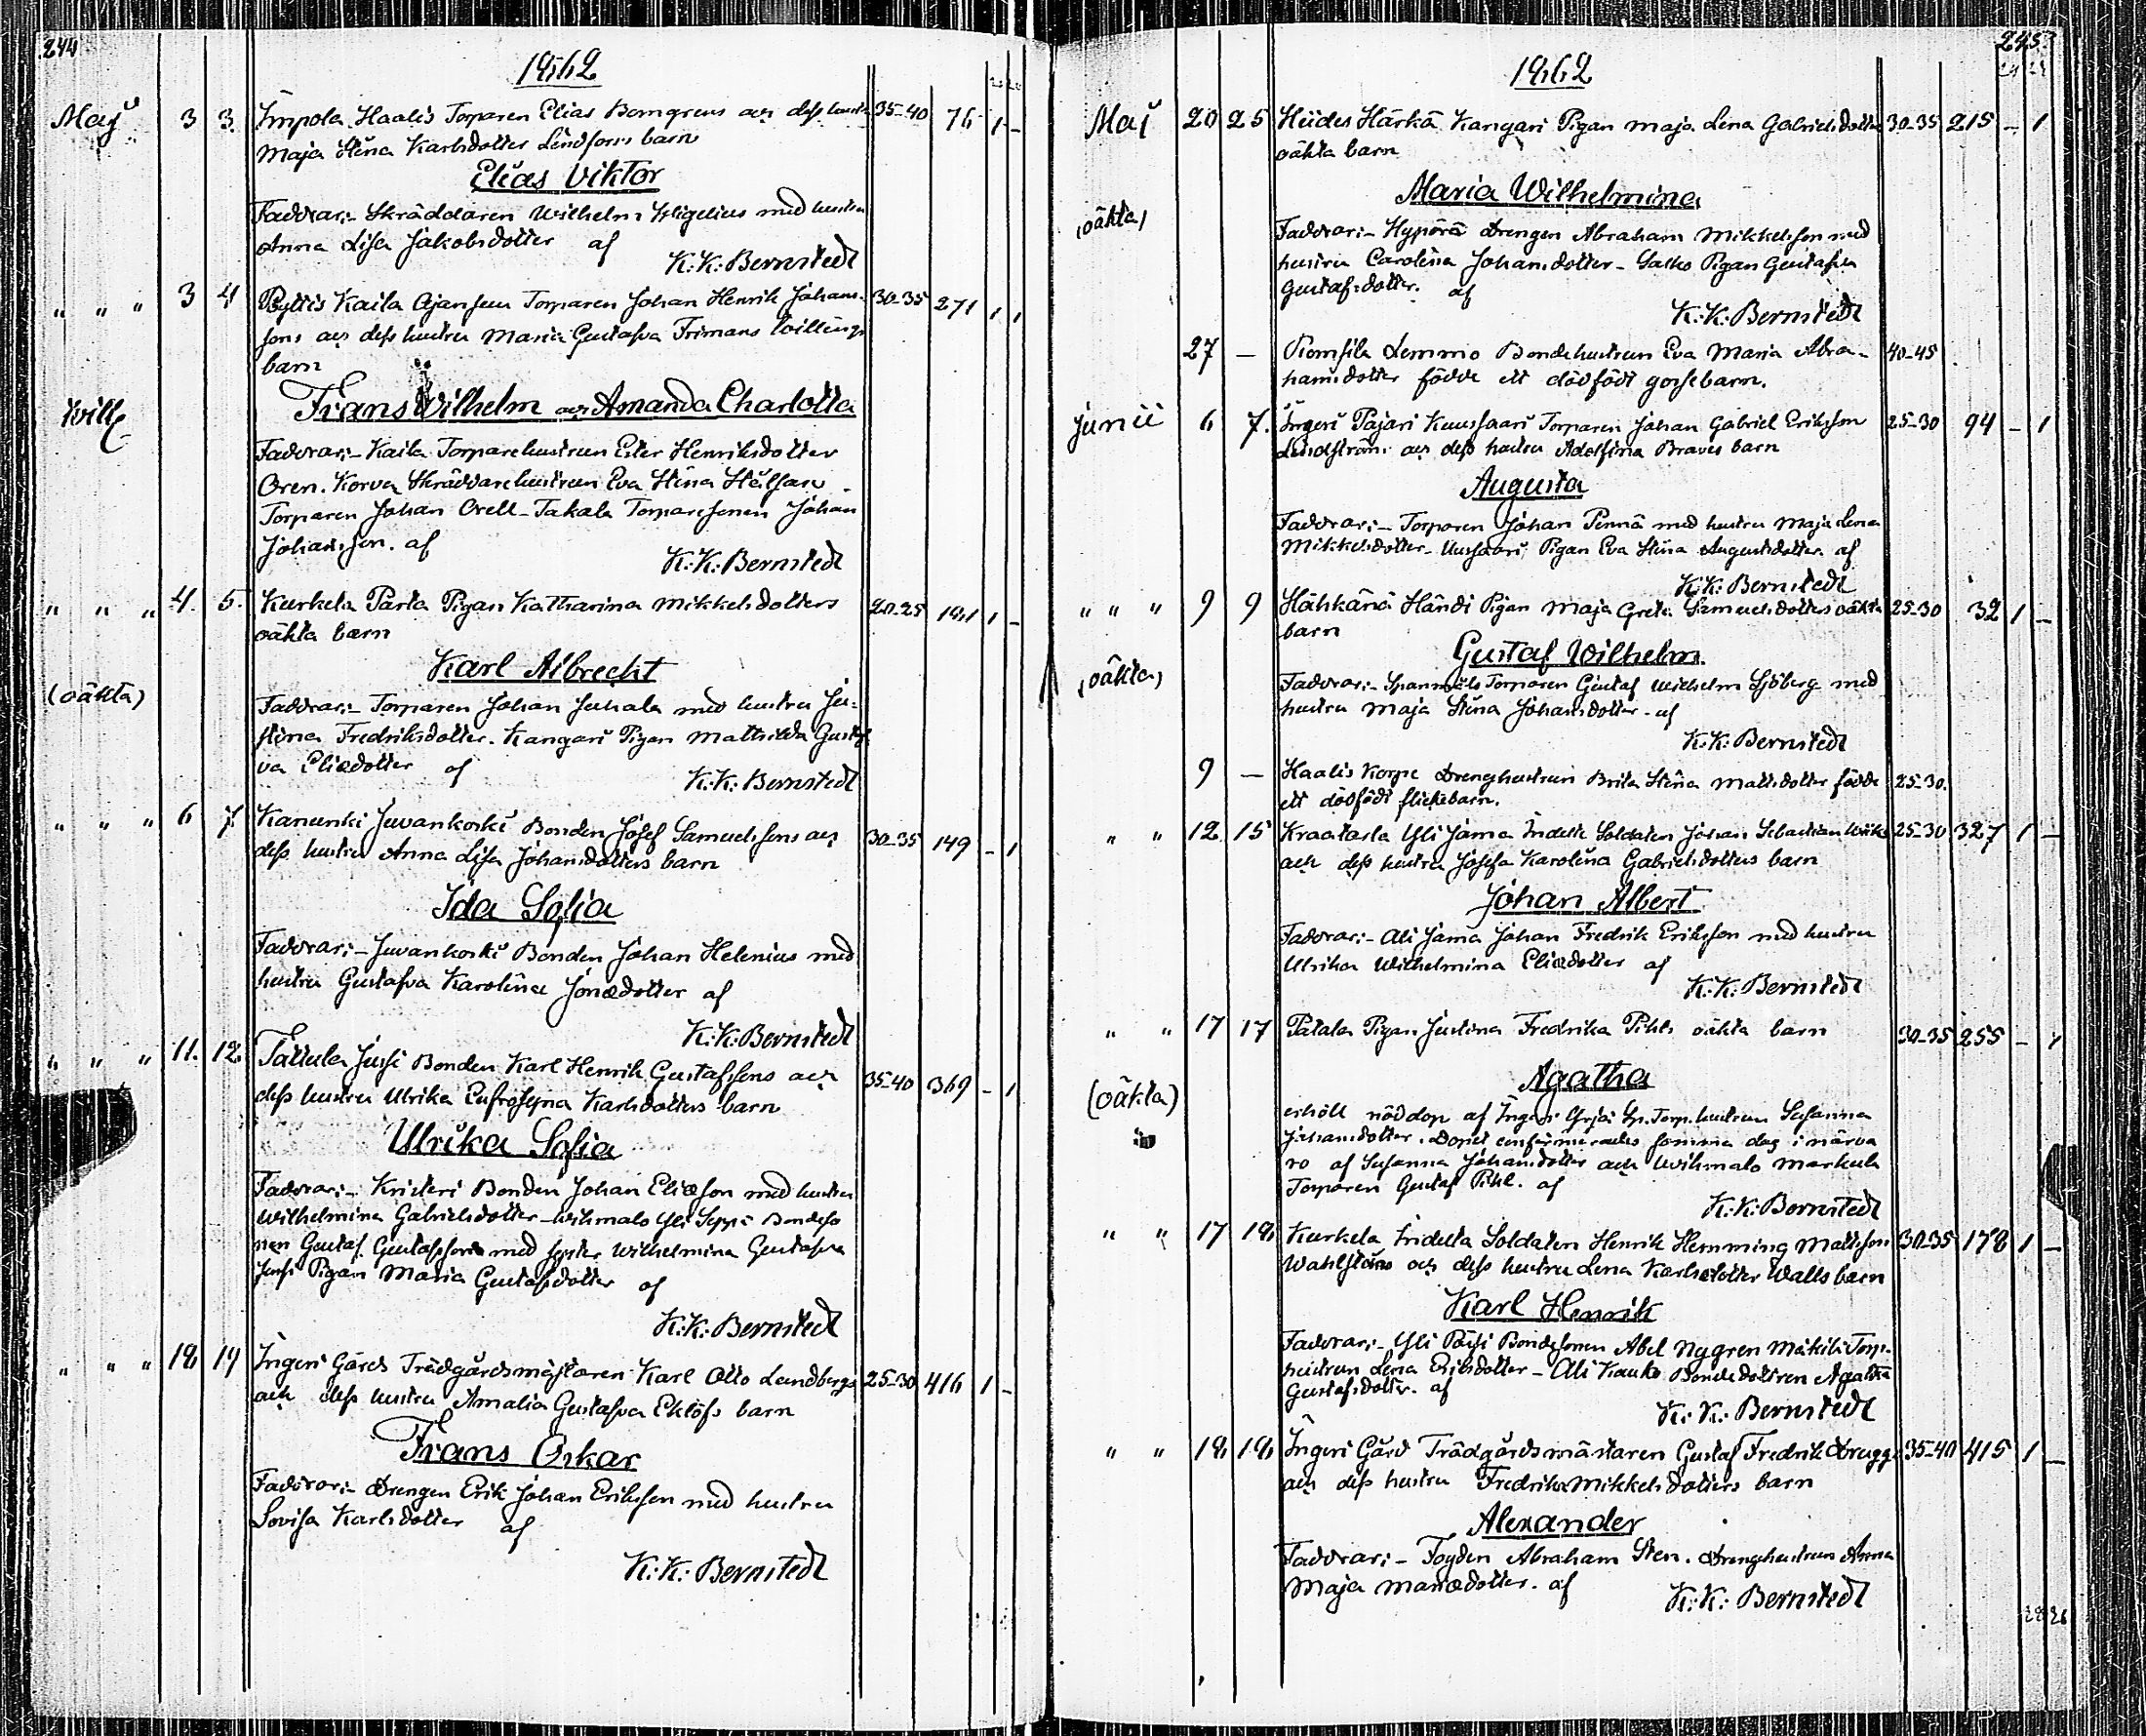 244
1862
Maij 3 3. Impola Haalis Torparen Elias Bomgrens och dess hustru 35-40 76 1 -
Maja Stina Karlsdotter Lindfors barn
Elias Viktor
Faddrar:- Skräddaren Wilhelm Heligelius med hustru
Anna Lisa Jakobsdotter af
K:K: Bernstedt
" " " 3 4 Pyttis Kaila Ojansuu Torparen Johan Henrik Johans- 30-35 271 1 1
sons och dess hustru Maria Gustafva Frimans tvillings
barn
Tvill:
Frans Wilhelm och Amanda Charlotta
Faddrar:- Kaila Torparehustrun Ester Henriksdotter
Oren. Korva Skräddarehustrun Eva Stina Hälfsan
Torparen Johan Orell - Takala Torparesonen Johan
Johansson. af
K:K: Bernstedt
" " " 4. 5. Kurkela Parta Pigan Katharina Mikkelsdotters 20-25 181 1 -
oäkta barn
Karl Albrecht
(oäkta)
Faddrar:- Torparen Johan Juhala med hustru Ju-
stina Fredriksdotter. Kangari Pigan Mathilda Gustaf
va Eliædotter af
K:K: Bernstedt
" " " 6 7. Kanunki Juvankoski Bonden Josef Samuelssons och 30-35 149 - 1
dess hustru Anna Lisa Johansdotters barn
Ida Sofia
Faddrar:- Juvankoski Bonden Johan Helenius med
hustru Gustafva Karolina Jonædotter af
K:K: Bernstedt
" " " 11. 12 Tattula Jussi Bonden Karl Henrik Gustafssons och 35-40 369 - 1
dess hustru Ulrika Eufrosyna Karlsdotters barn
Ulrika Sofia
Faddrar:- Kristeri Bonden Johan Eliæson med hustru
Wilhelmina Gabrielsdotter - Wihmalo Yli Seppä Bondeso
nen Gustaf Gustafsson med syster Wilhelmina Gustafva
Jussi Pigan Maria Gustafsdotter af
K:K: Bernstedt
" " " 18 19 Ingeri Gård Trädgårdsmästaren Karl Otto Lundbergs 25-30 416 1 -
och dess hustru Amalia Gustafva Eklöfs barn
Frans Oskar
Faddrar:- Drengen Erik Johan Eriksson med hustru
Lovisa Karlsdotter af
K:K: Bernstedt
245
1862
Maj 20 25 Hiides Härkä Kangari Pigan Maja Lena Gabrielsdotters 30-35 215 - 1
oäkta barn
Maria Wilhelmina
(oäkta)
Faddrar:- Hypörä Drengen Abraham Mikkelsson med
hustru Carolina Johansdotter - Sasko Pigan Gustafva
Gustafsdotter. af
K:K: Bernstedt
27 - Romsila Lemmo Bondehustrun Eva Maria Abra- 40-45
hamsdotter födde ett dödfödt gossebarn.
Junii 6 7. Ingeri Pajari Kuussaari Torparen Johan Gabriel Eriksson 25-30 94 - 1
Lindström och dess hustru Adolfina Braves barn
Augusta
Faddrar:- Torparen Johan Pennä med hustru Maja Lena
Mikkelsdotter - Uussaari Pigan Eva Stina Augustsdotter. af
K:K: Bernstedt
" " " 9 9 Hähkänä Händi Pigan Maja Greta Samuelsdotters oäkta 25-30 32 1 -
barn
Gustaf Wilhelm.
(oäkta)
Faddrar:- Spannmåls Torparen Gustaf Wilhelm Sjöberg med
hustru Maja Stina Johansdotter. af
K:K: Bernstedt
9 - Haalis Korpe Drenghustrun Brita Stina Mattsdotter födde 25-30.
ett dödfödt flickebarn.
" " 12 15 Kraatarla Yli Jama Indelte Soldaten Johan Sebastian 25-30 327 1 -
och dess hustru Josefa Karolina Gabrielsdotters barn
Johan Albert
Faddrar:- Ali Jama Johan Fredrik Eriksson med hustru
Ulrika Wilhelmina Eliædotter af
K:K: Bernstedt
" " 17 17 Patala Pigan Justina Fredrika Pihls oäkta barn 30-35 255 - 1
Agatha
(oäkta)
erhöll nöddop af Ingeri Yrjä Sp. Torp. hustrun Susanna
Johansdotter. Dopet confirmerades samma dag i närva
ro af Susanna Johansdotter och Wihmalo Markula
Torparen Gustaf Pihl. af
K:K: Bernstedt
" " 17 18 Kurkela Indelta Soldaten Henrik Hemming Mattsson 30-35 178 1 -
Wahlstens och dess hustru Lena Karlsdotter Walls barn
Karl Henrik
Faddrar:- Yli Päsi Bondesonen Abel Nygren Mäkilä Torp-
hustrun Lena Eriksdotter - Ali Kauko Bondedottren Agatha
Gustafsdotter. af
K:K: Bernstedt
" " 18 18 Ingeri Gård Trädgårdsmästaren Gustaf Fredrik Druggs 35-40 415 1 -
och dess hustru Fredrika Mikkelsdotters barn
Alexander
Faddrar:- Fogden Abraham Sten. Drenghustrun Anna
Maja Mariædotter. af
K:K: Bernstedt